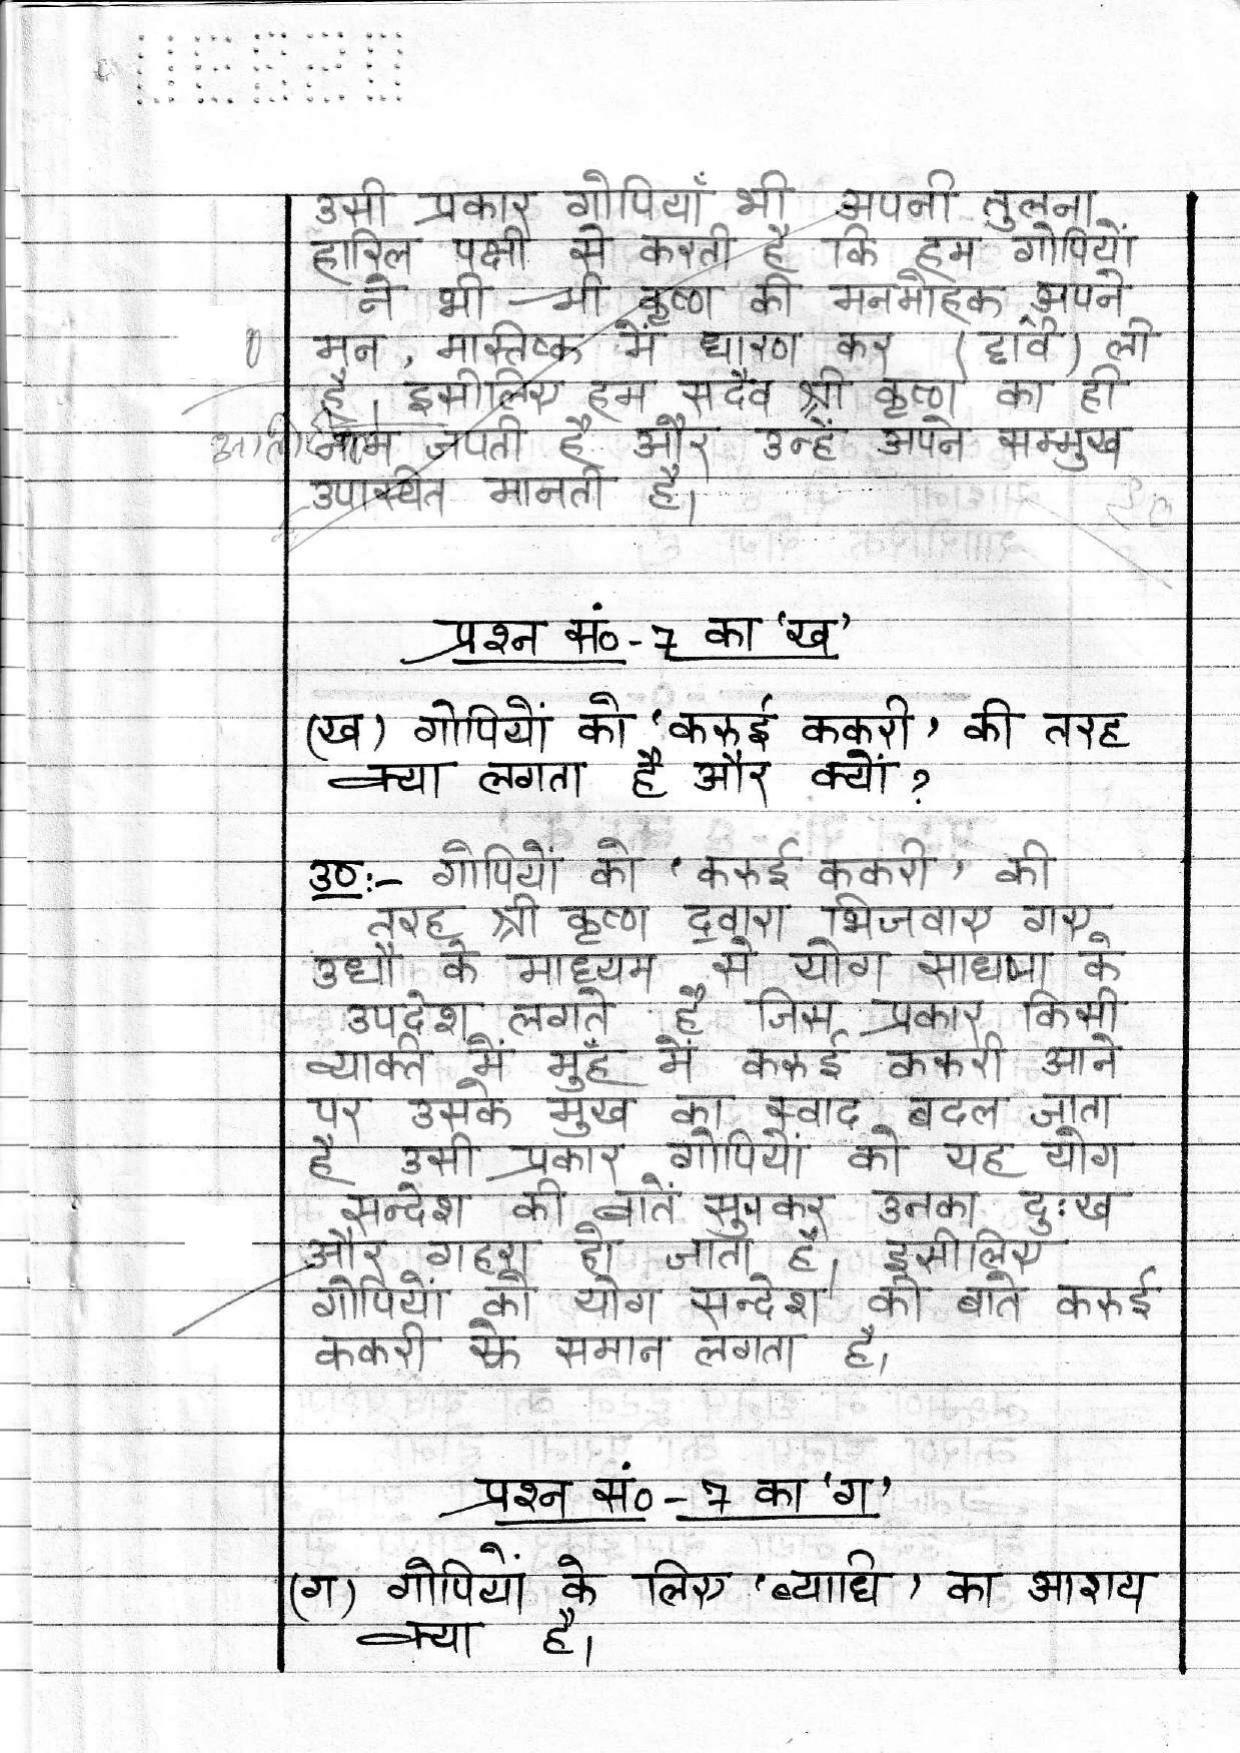 उसी प्रकार गोपियाँ भी अपनी तुलना
हारिल पक्षी से करती है कि हम गोपियों
ने भी श्री कृष्ण की मनमोहक अपने
मन, मास्तिष्क में धारण कर (हावि) ली
है। इसीलिए हम सदैव श्री कृष्ण का ही
नाम जपती है और उन्हें अपने सम्मुख
उपास्थित मानती है।
प्रश्न सं०-7 का 'ख'
(ख) गोपियों को 'करुई ककरी' की तरह
क्या लगता है और क्यों?
उ०:- गोपियों को 'करुई ककरी' की
तरह श्री कृष्ण द्वारा भिजवाए गए
उधौ के माध्यम से योग साधना के
उपदेश लगते है जिस प्रकार किसी
व्याक्ति में मुहँ में करुई ककरी आने
पर उसके मुख का स्वाद बदल जाता
है उसी प्रकार गोपियों को यह योग
सन्देश की बातें सुनकर उनका दुःख
और गहरा हो जाता है। इसीलिए
गोपियों को योग सन्देश की बाते करुई
ककरी के समान लगता है।
प्रश्न सं०-7 का 'ग'
(ग) गोपियों के लिए 'व्याधि' का आशय
क्या है।